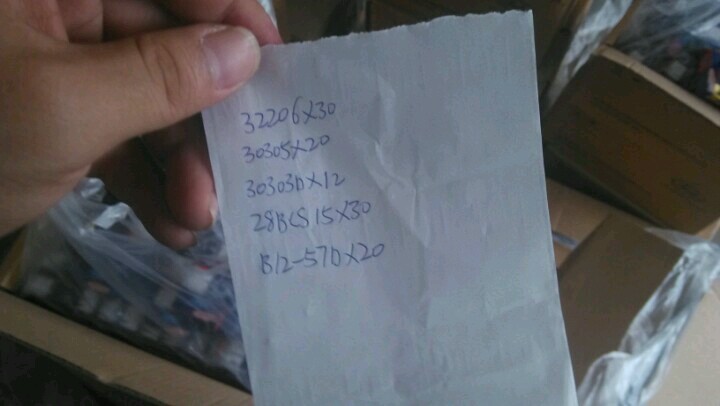 32206X30
30305X20
30303DX12
28BCS15X30
B12-57DX20